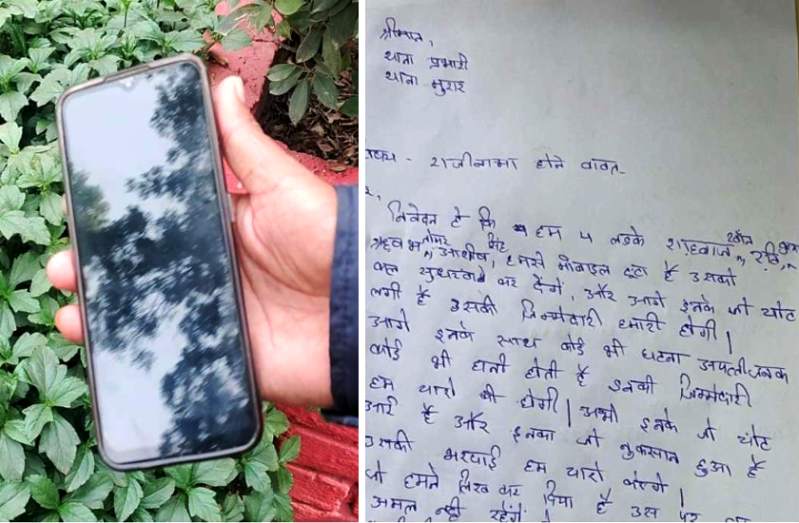 श्रीमान,
थाना प्रभारी
थाना मुरार
राजीनामा होने वावत
निवेदन है कि हम 4 लडके शाहवाज खॉन, रवि
आशीष, हमसे मोबाइल टूटा है उसको
कल सुधरवाके कर देंगे, और आगे इनके जो चोट
लगी है उसकी जिम्मेदारी हमारी होगी।
आगे इनके साथ कोई भी घटना
कोई भी हानी होती है उनकी जिम्मेदारी
हम चारो की होगी। अभी इनके जो चोट
आई है और इनका जो नुकसान हुआ है
उसकी भरपाई हम चारो करेगे।
जो हमने लिख कर दिया है उस पर
अमल नही रहेंगे